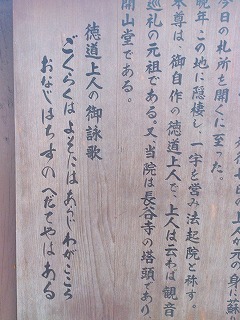 今日の札所を開くに至った。
晩年この地に隠棲し、一宇を営み法起院と称す。
本尊は、御自作の徳道上人で、上人は云わば観音
巡礼の元祖である。又、当院は長谷寺の塔頭であり
開山堂である。
徳道上人の御詠歌
ごくらくはよそにはあらじわがこころ
おなじはちすのへだてやはある